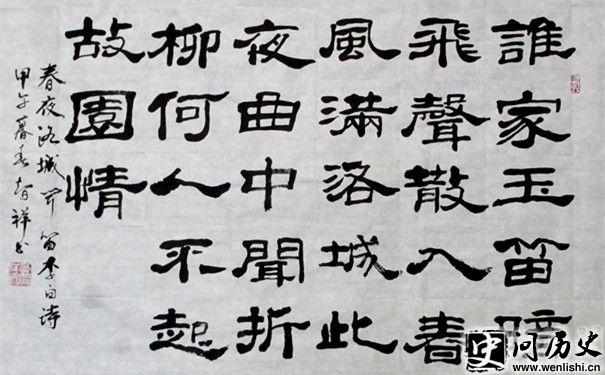 誰家玉笛暗
飛聲散入春
風滿洛城此
夜曲中聞折
柳何人不起
故園情
春夜洛城闻笛李白诗
甲午暮春智祥书
问历史
www.wenlishi.cn